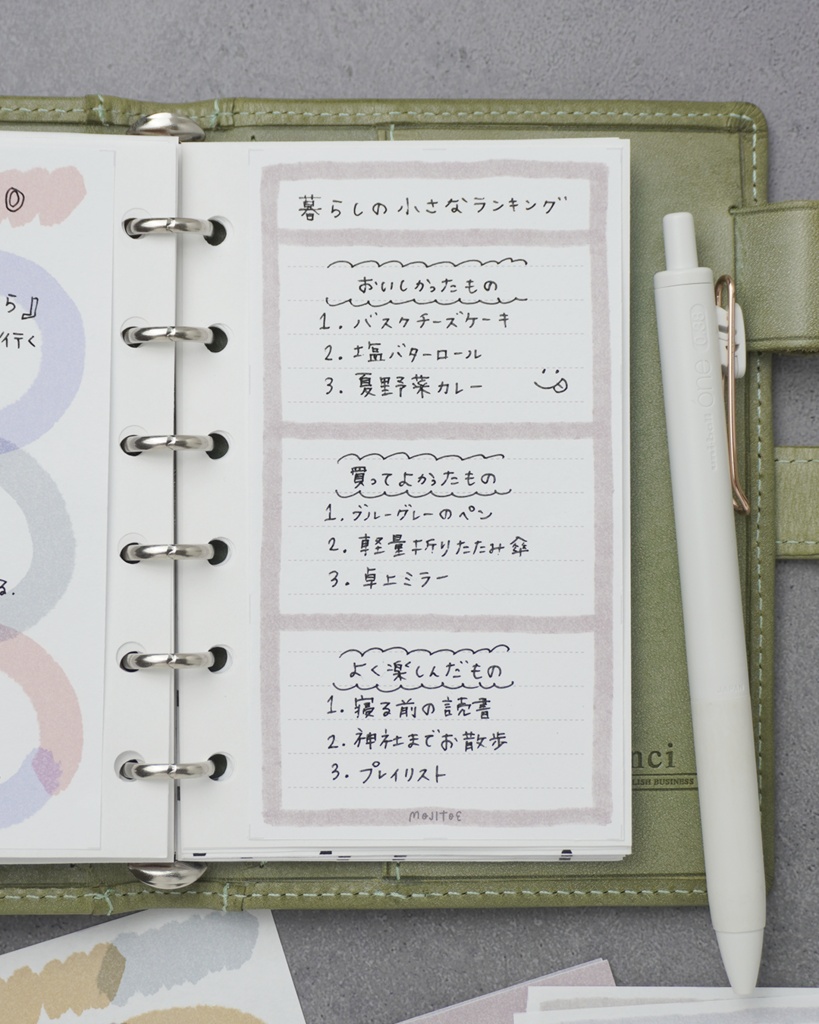 ら』
行く
る.
暮らしの小さなランキング
おいしかったもの
1. バスクチーズケーキ
2. 塩バターロール
3. 夏野菜カレー
買ってよかったもの
1. ブルーグレーのペン
2. 軽量折りたたみ傘
3. 卓上ミラー
よく楽しんだもの
1. 寝る前の読書
2. 神社までお散歩
3. プレイリスト
mojitoe
uni-ball one
nci
LISH BUSINESS